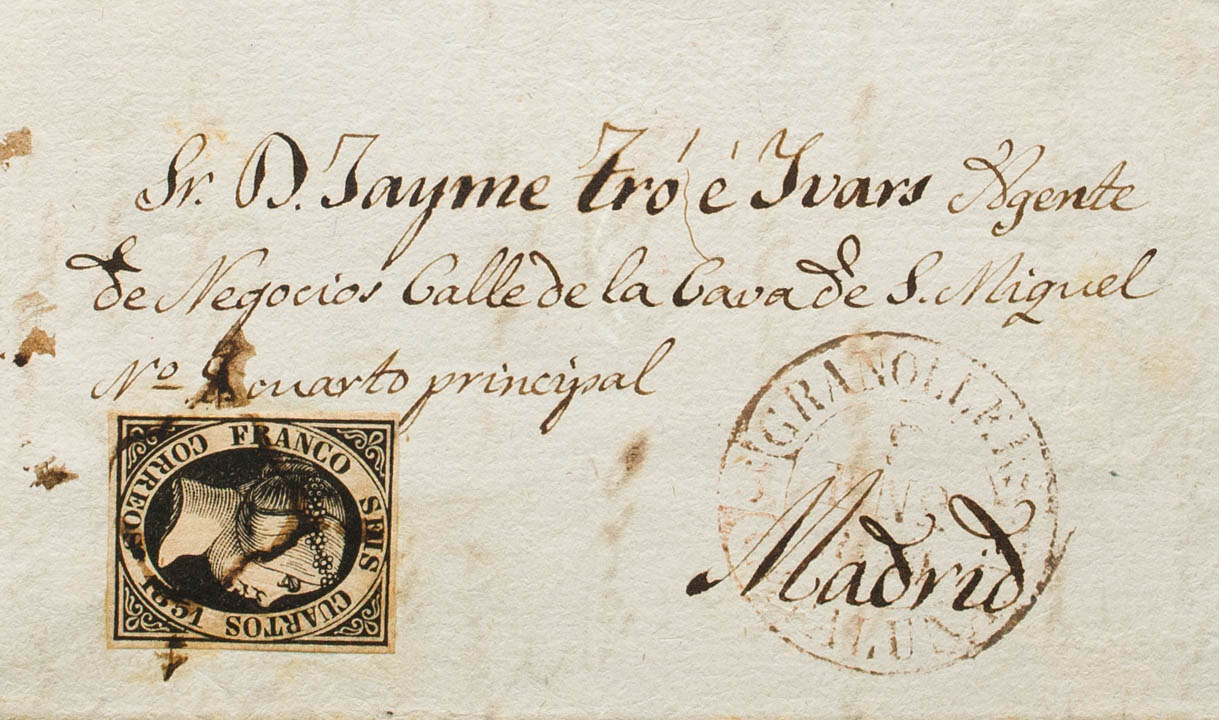 Sr. D. Jayme Tró é Ivars Agente
de Negocios Calle de la Cava de S. Miguel
No cuarto principal
FRANCO SEIS CUARTOS 1851 CORREOS
GRANOLLERS
Madrid